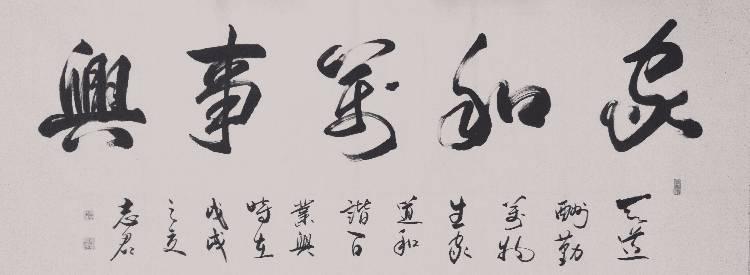 家和萬事興
天道
酬勤
萬物
生家
道和
諧百
業興
時在
戊戌
之
志君